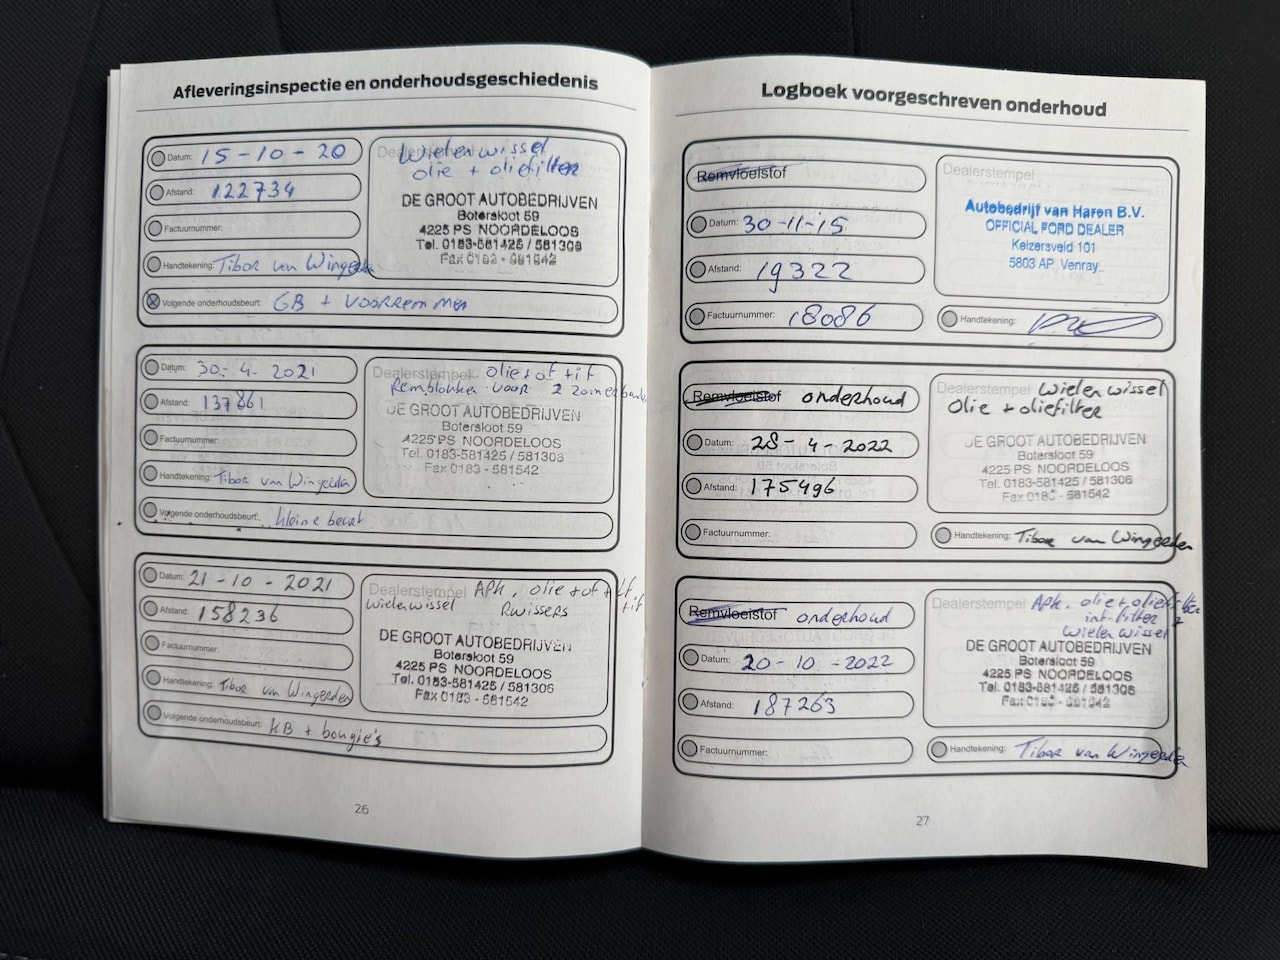 Afleveringsinspectie en onderhoudsgeschiedenis
Datum: 15-10-20
Afstand: 122734
Factuurnummer:
Handtekening: Tibor van Wingerden
Volgende onderhoudsbeurt: GB + Voorremmen
Dealerstempel
Wielenwissel
olie + oliefilter
DE GROOT AUTOBEDRIJVEN
Botersloot 59
4225 PS NOORDELOOS
Tel. 0183-581425 / 581306
Fax 0183 - 581542
Datum: 30-4-2021
Afstand: 137861
Factuurnummer:
Handtekening: Tibor van Wingerden
Volgende onderhoudsbeurt: kleine beurt
Dealerstempel olie + of + if
Remblokken voor 2 zomerbanden
DE GROOT AUTOBEDRIJVEN
Botersloot 59
4225 PS NOORDELOOS
Tel. 0183-581425 / 581306
Fax 0183 - 581542
Datum: 21-10-2021
Afstand: 158236
Factuurnummer:
Handtekening: Tibor van Wingerden
Volgende onderhoudsbeurt: KB + bougie's
Dealerstempel APK, olie + of + lf
wielenwissel Rwissers + if
DE GROOT AUTOBEDRIJVEN
Botersloot 59
4225 PS NOORDELOOS
Tel. 0183-581425 / 581306
Fax 0183 - 581542
26
Logboek voorgeschreven onderhoud
Remvloeistof
Datum: 30-11-15
Afstand: 19322
Factuurnummer: 18086
Dealerstempel
Autobedrijf van Haren B.V.
OFFICIAL FORD DEALER
Keizersveld 101
5803 AP Venray
Handtekening:
Remvloeistof onderhoud
Datum: 28-4-2022
Afstand: 175496
Factuurnummer:
Dealerstempel Wielenwissel
Olie + oliefilter
DE GROOT AUTOBEDRIJVEN
Botersloot 59
4225 PS NOORDELOOS
Tel. 0183-581425 / 581306
Fax 0183 - 581542
Handtekening: Tibor van Wingerden
Remvloeistof onderhoud
Datum: 20-10-2022
Afstand: 187263
Factuurnummer:
Dealerstempel APK, olie + oliefilter
int-filter
Wielenwissel
DE GROOT AUTOBEDRIJVEN
Botersloot 59
4225 PS NOORDELOOS
Tel. 0183-581425 / 581306
Fax 0183 - 581542
Handtekening: Tibor van Wingerden
27